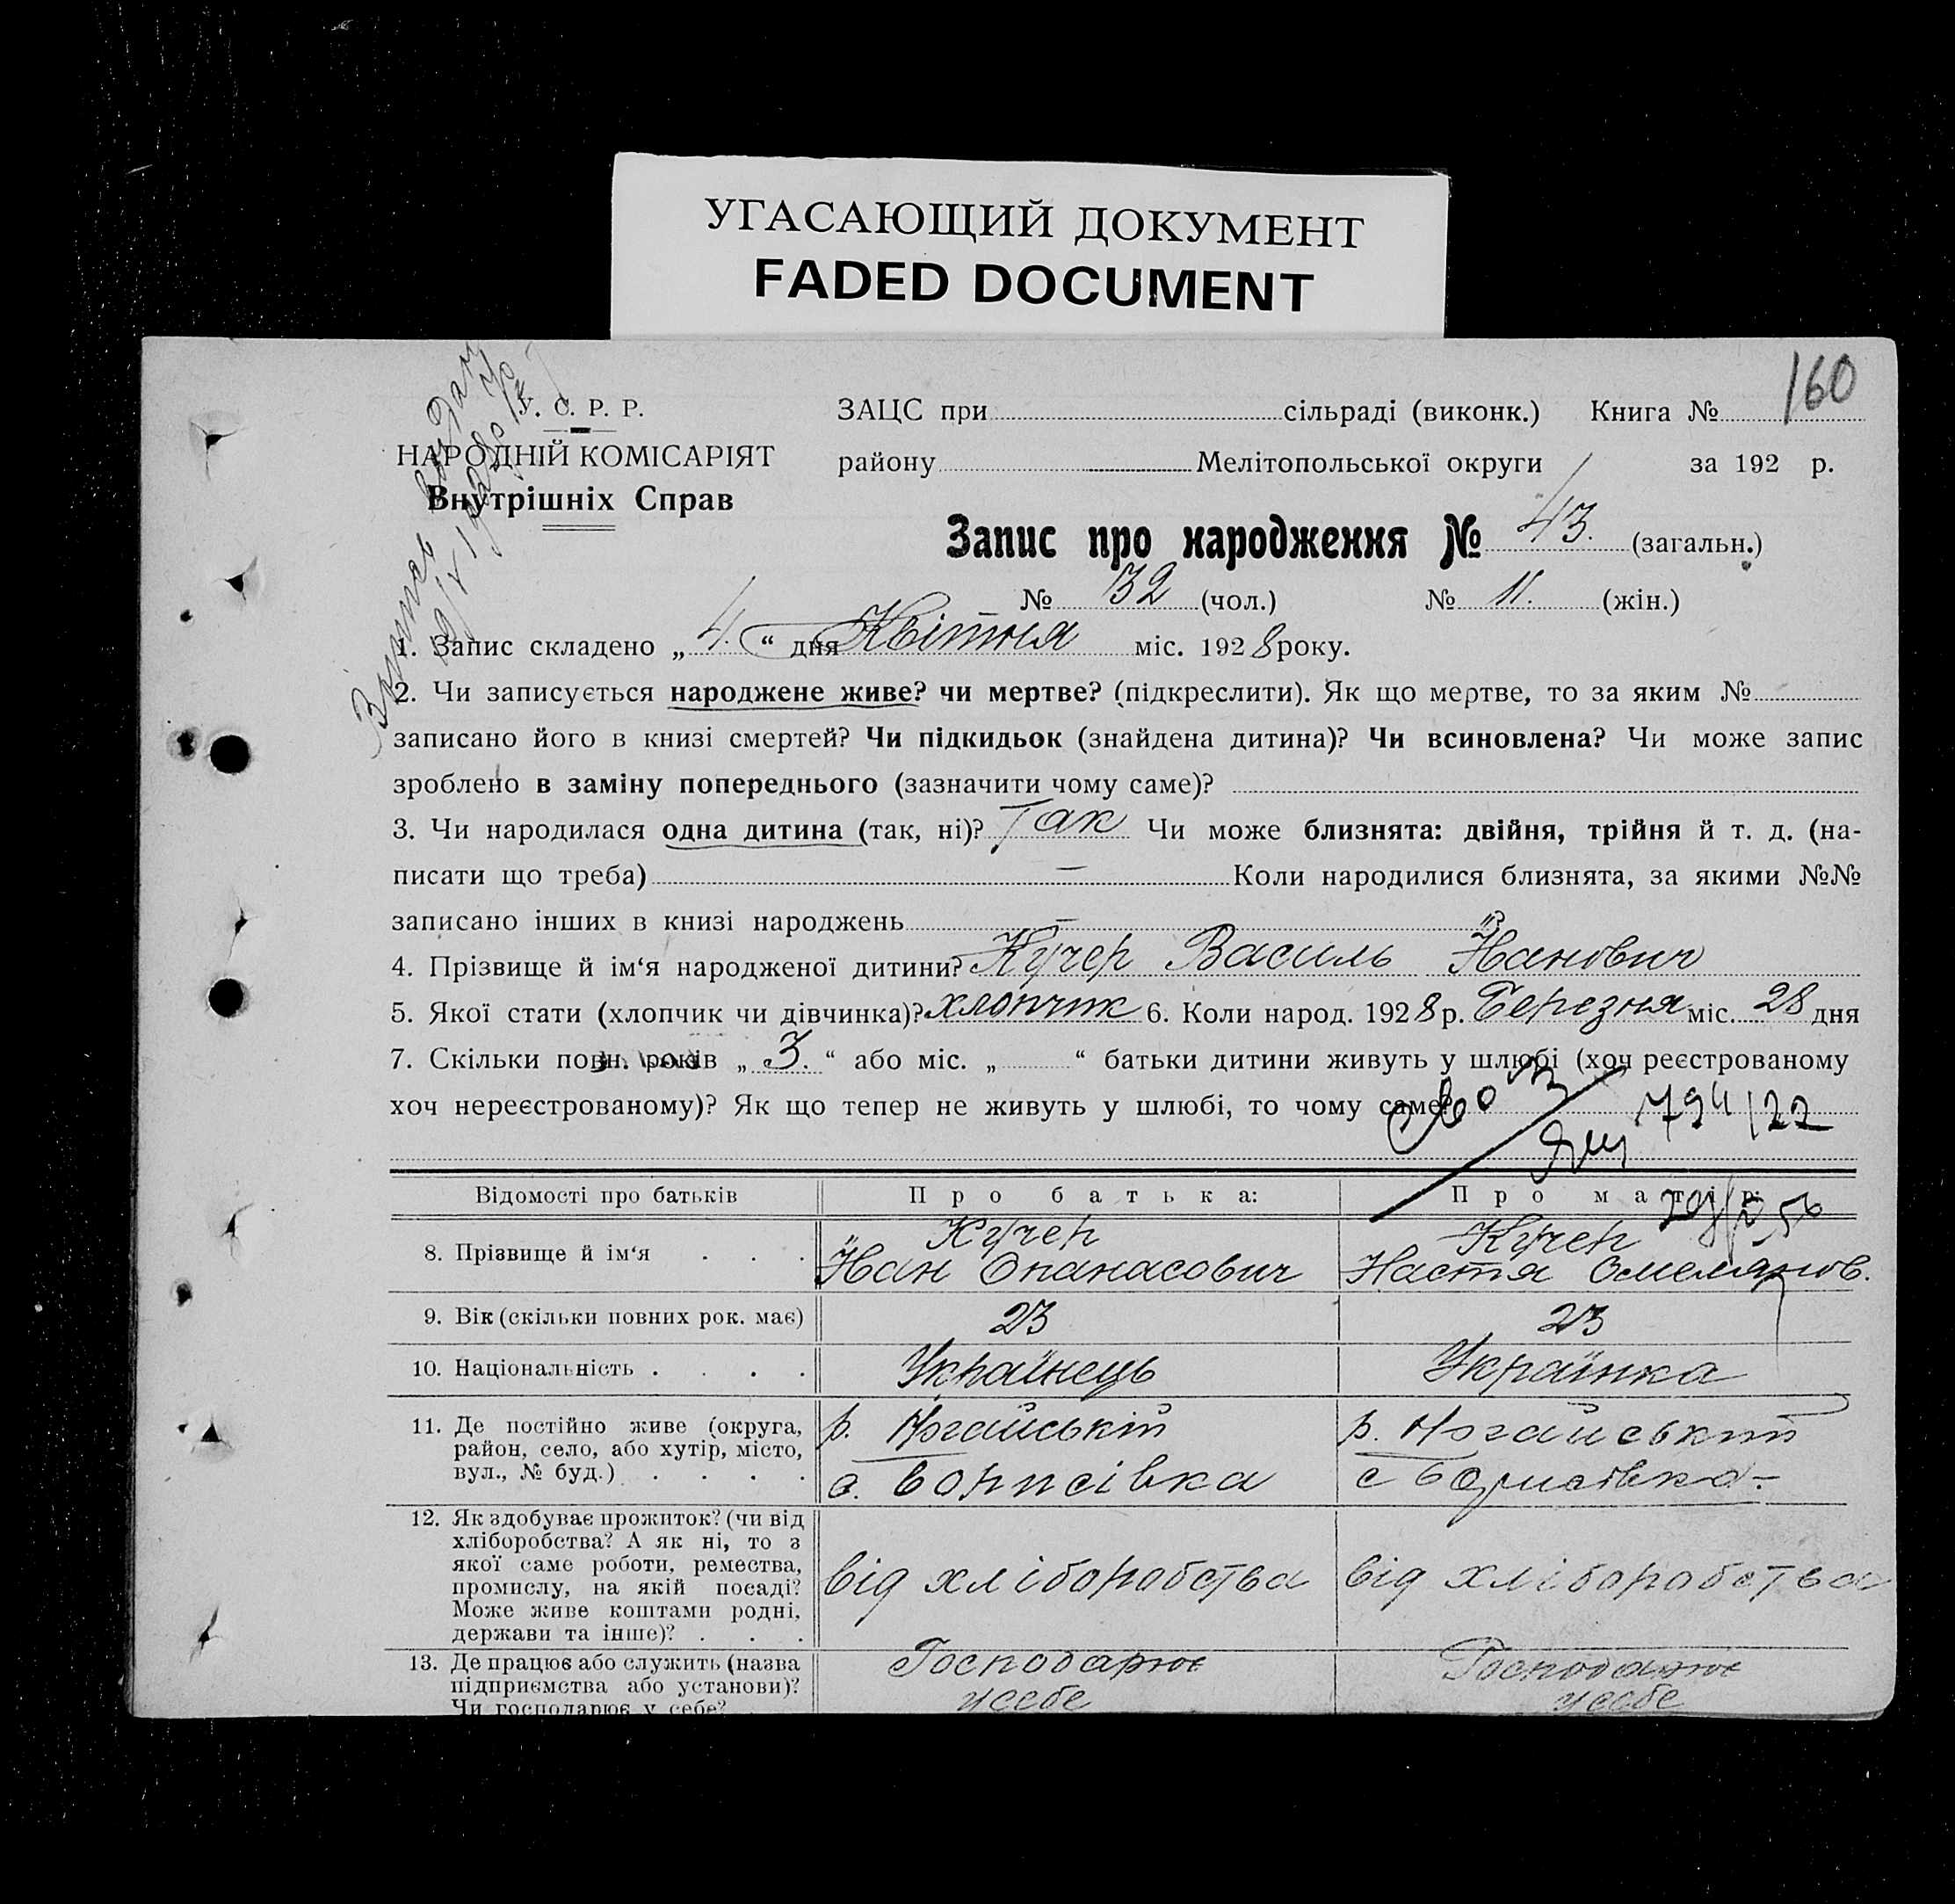 УГАСАЮЩИЙ ДОКУМЕНТ
FADED DOCUMENT
160
У. С. Р. Р.
НАРОДНІЙ КОМІСАРІЯТ
Внутрішніх Справ
ЗАЦС при сільраді (виконк.) Книга №
району Мелітопольської округи за 192 р.
Запис про народження № 43. (загальн.)
№ 32 (чол.) № 11. (жін.)
1. Запис складено „ 4. “ дня Квітня міс. 1928 року.
2. Чи записується народжене живе? чи мертве? (підкреслити). Як що мертве, то за яким №
записано його в книзі смертей? Чи підкидьок (знайдена дитина)? Чи всиновлена? Чи може запис
зроблено в заміну попереднього (зазначити чому саме)?
3. Чи народилася одна дитина (так, ні)? Так Чи може близнята: двійня, трійня й т. д. (на-
писати що треба) — Коли народилися близнята, за якими №№
записано інших в книзі народжень — ?
4. Прізвище й ім‘я народженої дитини? Кучер Василь Йванович
5. Якої стати (хлопчик чи дівчинка)? хлопчик 6. Коли народ. 1928 р. Березня міс. 28 дня
7. Скільки повн. років „ 3. “ або міс. „ “ батьки дитини живуть у шлюбі (хоч реєстрованому
хоч нереєстрованому)? Як що тепер не живуть у шлюбі, то чому саме?
794/22
Відомості про батьків Про батька: Про матір:
8. Прізвище й ім‘я . . . Кучер Йван Опанасович Кучер Настя Омелянов.
9. Вік (скільки повних рок. має) 23 23
10. Національність . . . . Українець Українка
11. Де постійно живе (округа,
район, село, або хутір, місто,
вул., № буд.) . . . .
р. Ногайській
с. Борисівка
р. Ногайський
с Борисівка —
12. Як здобуває прожиток? (чи від
хліборобства? А як ні, то з
якої саме роботи, ремества,
промислу, на якій посаді?
Може живе коштами родні,
держави та інше)? . . .
від хліборобства від хліборобства
13. Де працює або служить (назва
підприємства або установи)?
Чи господарює у себе?
Господарює
у себе
Господарює
у себе